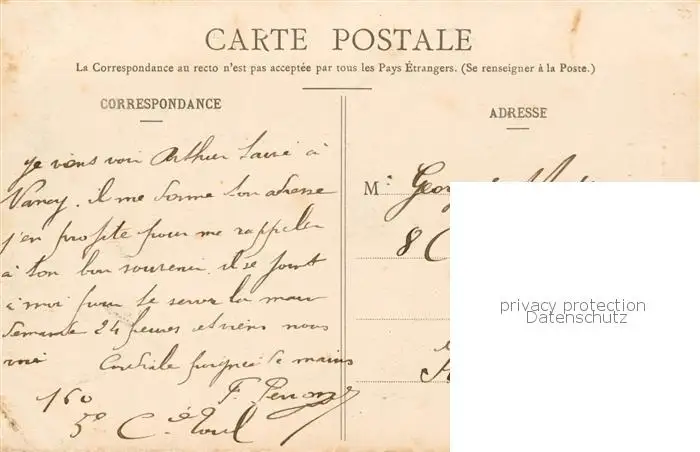 CARTE POSTALE
La Correspondance au recto n'est pas acceptée par tous les Pays Étrangers. (Se renseigner à la Poste.)
CORRESPONDANCE
je viens voir Arthur à
Nancy. il me donne ton adresse
j'en profite pour me rappeler
à ton bon souvenir, il se joint
à moi pour te serrer la main
demande 24 heures et viens nous
Cordiale poignée de mains
160
5e Cie Toul
ADRESSE
M
8
privacy protection
Datenschutz